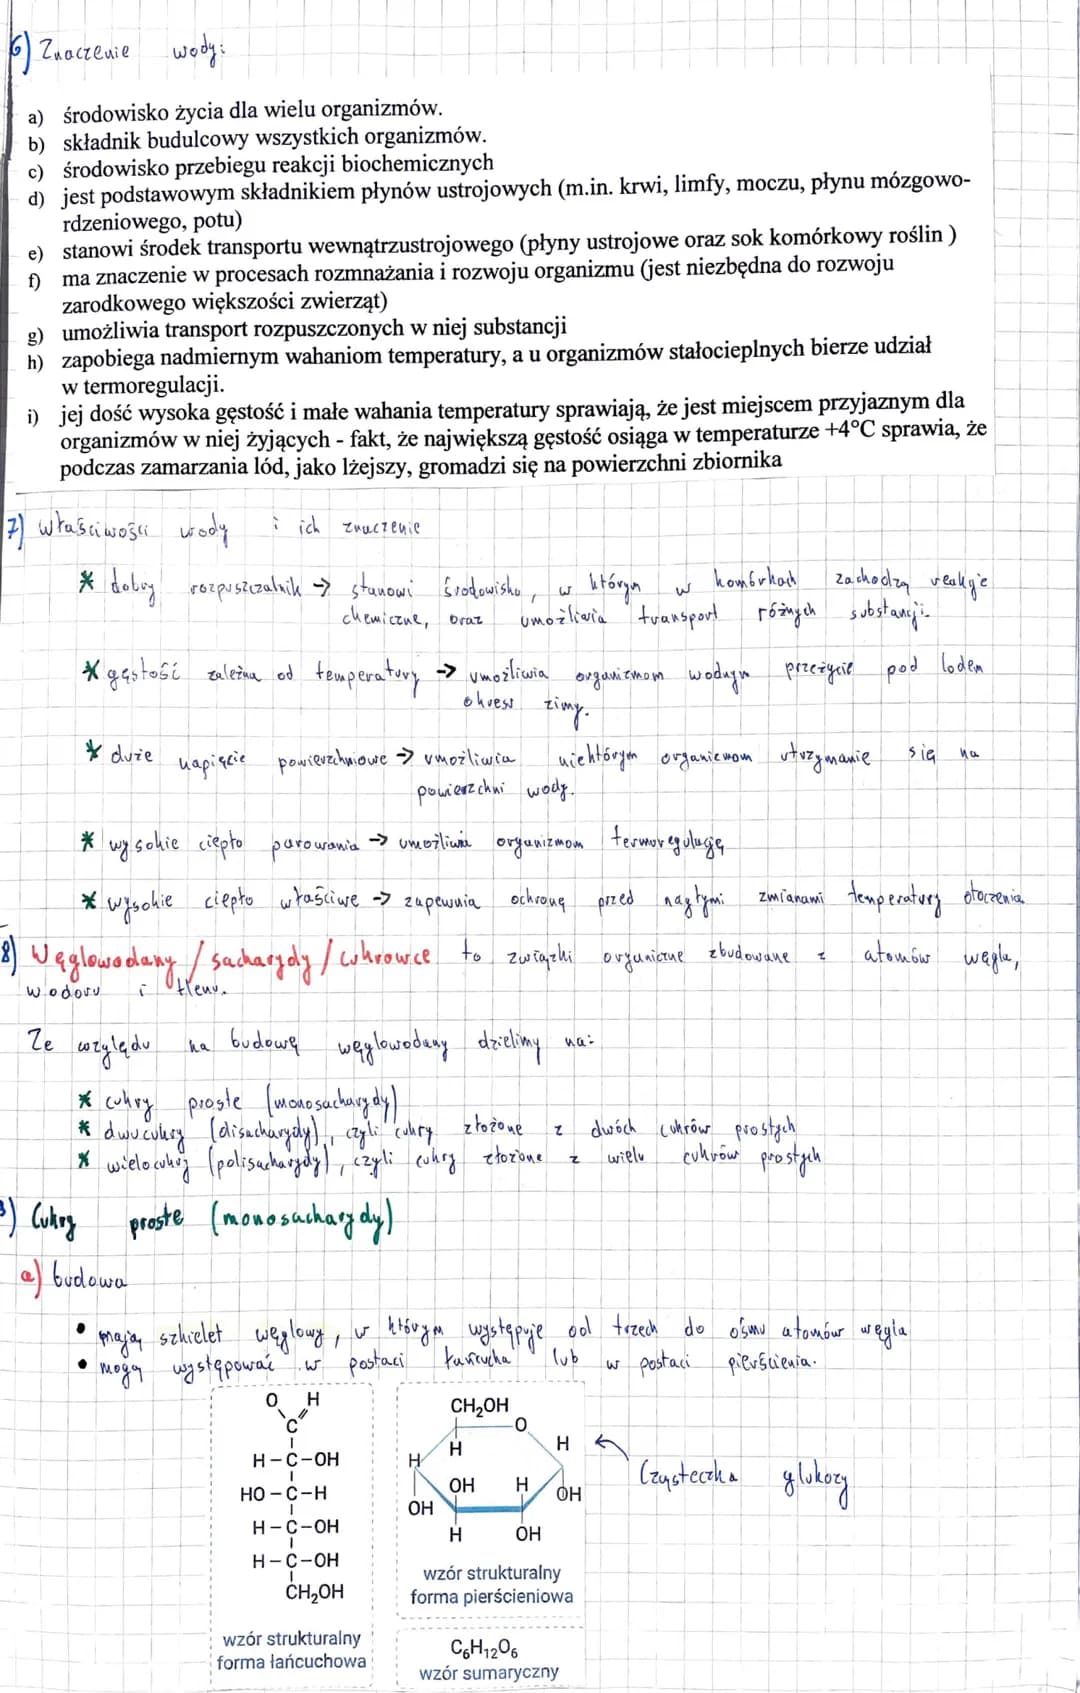 6) Znaczenie wody:
a) środowisko życia dla wielu organizmów.
b) składnik budulcowy wszystkich organizmów.
c) środowisko przebiegu reakcji biochemicznych
d) jest podstawowym składnikiem płynów ustrojowych (m.in. krwi, limfy, moczu, płynu mózgowo-
rdzeniowego, potu)
e) stanowi środek transportu wewnątrzustrojowego (płyny ustrojowe oraz sok komórkowy roślin )
f) ma znaczenie w procesach rozmnażania i rozwoju organizmu (jest niezbędna do rozwoju
zarodkowego większości zwierząt)
g) umożliwia transport rozpuszczonych w niej substancji
h) zapobiega nadmiernym wahaniom temperatury, a u organizmów stałocieplnych bierze udział
w termoregulacji.
i) jej dość wysoka gęstość i małe wahania temperatury sprawiają, że jest miejscem przyjaznym dla
organizmów w niej żyjących - fakt, że największą gęstość osiąga w temperaturze +4°C sprawia, że
podczas zamarzania lód, jako lżejszy, gromadzi się na powierzchni zbiornika
7) właściwości wody i ich znaczenie
* dobry rozpuszczalnik → stanowi środowisko, w którym w komórkach zachodzą reakcje
chemiczne, oraz umożliwia transport różnych substancji
* gęstość zależna od temperatury → umożliwia organizmom wodnym przeżycie pod lodem
okresu zimy.
* duże napięcie powierzchniowe → umożliwia niektórym organizmom utrzymanie się na
powierzchni wody.
* wysokie ciepło parowania → umożliwia organizmom termoregulację
* wysokie ciepło właściwe → zapewnia ochronę przed nagłymi zmianami temperatury otoczenia
8) Węglowodany / sacharydy / cukrowce to związki organiczne zbudowane z atomów węgla,
wodoru i tlenu.
Ze względu na budowę węglowodany dzielimy na:
* cukry proste (monosacharydy)
* dwucukry (disacharydy), czyli cukry złożone z dwóch cukrów prostych
* wielocukry (polisacharydy), czyli cukry złożone z wielu cukrów prostych
) Cukry proste (monosacharydy)
a) budowa
• mają szkielet węglowy, w którym występuje od trzech do ośmu atomów węgla
• mogą występować w postaci łańcucha lub w postaci pierścienia.
O H
C
H-C-OH
HO-C-H
H-C-OH
H-C-OH
CH₂OH
wzór strukturalny
forma łańcuchowa
CH₂OH
O
H H H
OH H
OH OH
H OH
wzór strukturalny
forma pierścieniowa
C₆H₁₂O₆
wzór sumaryczny
Cząsteczka glukozy